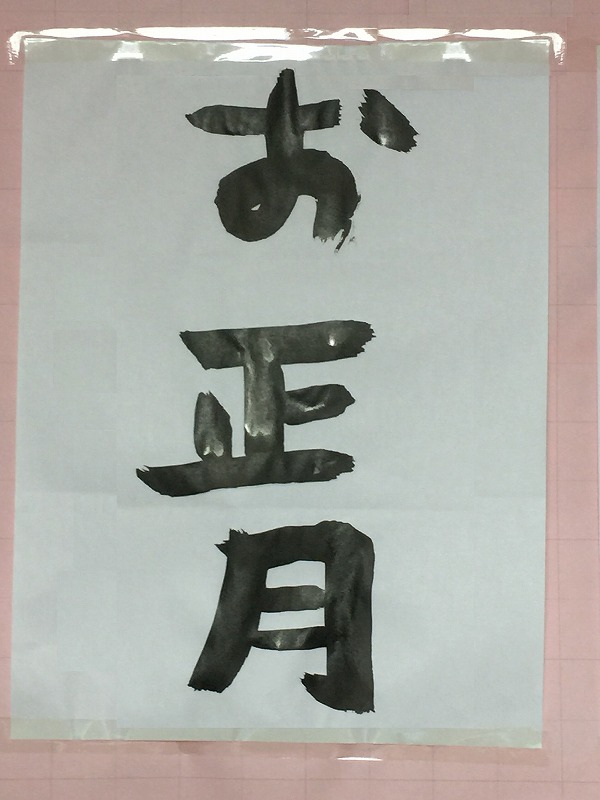 お正月